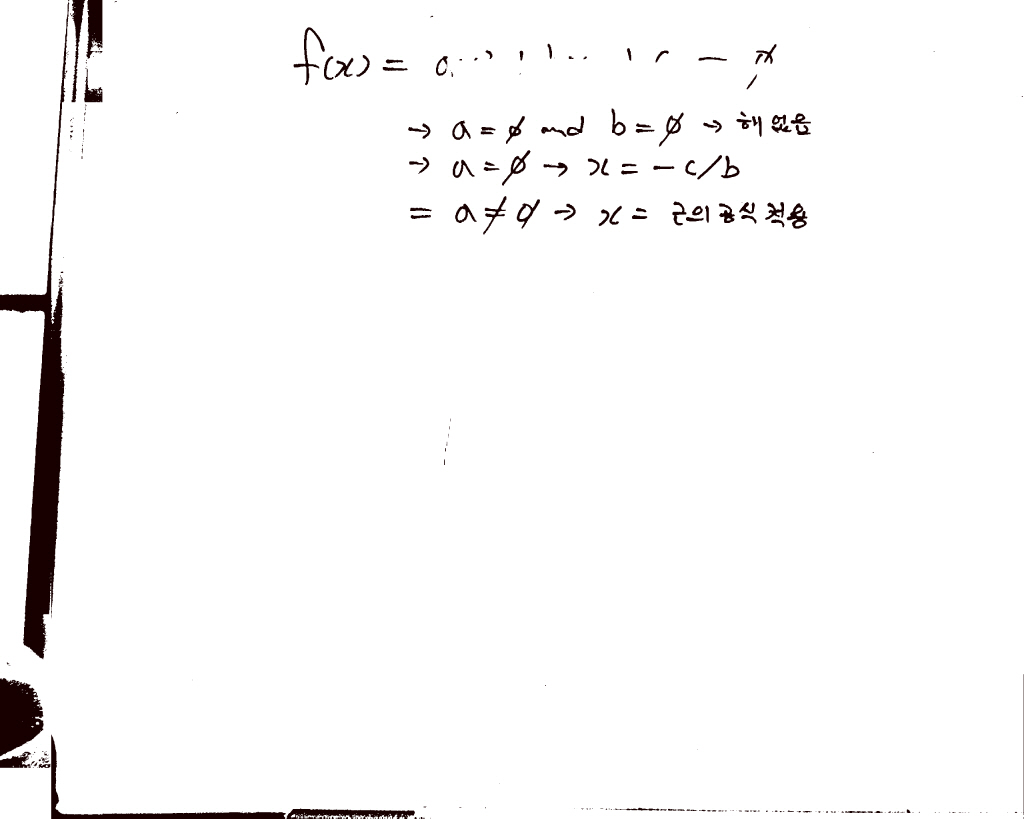 f(x) =
→ a = ∅ and b = ∅ → 해 없음
→ a = ∅ → x = - c/b
= a ≠ ∅ → x = 근의 공식 적용